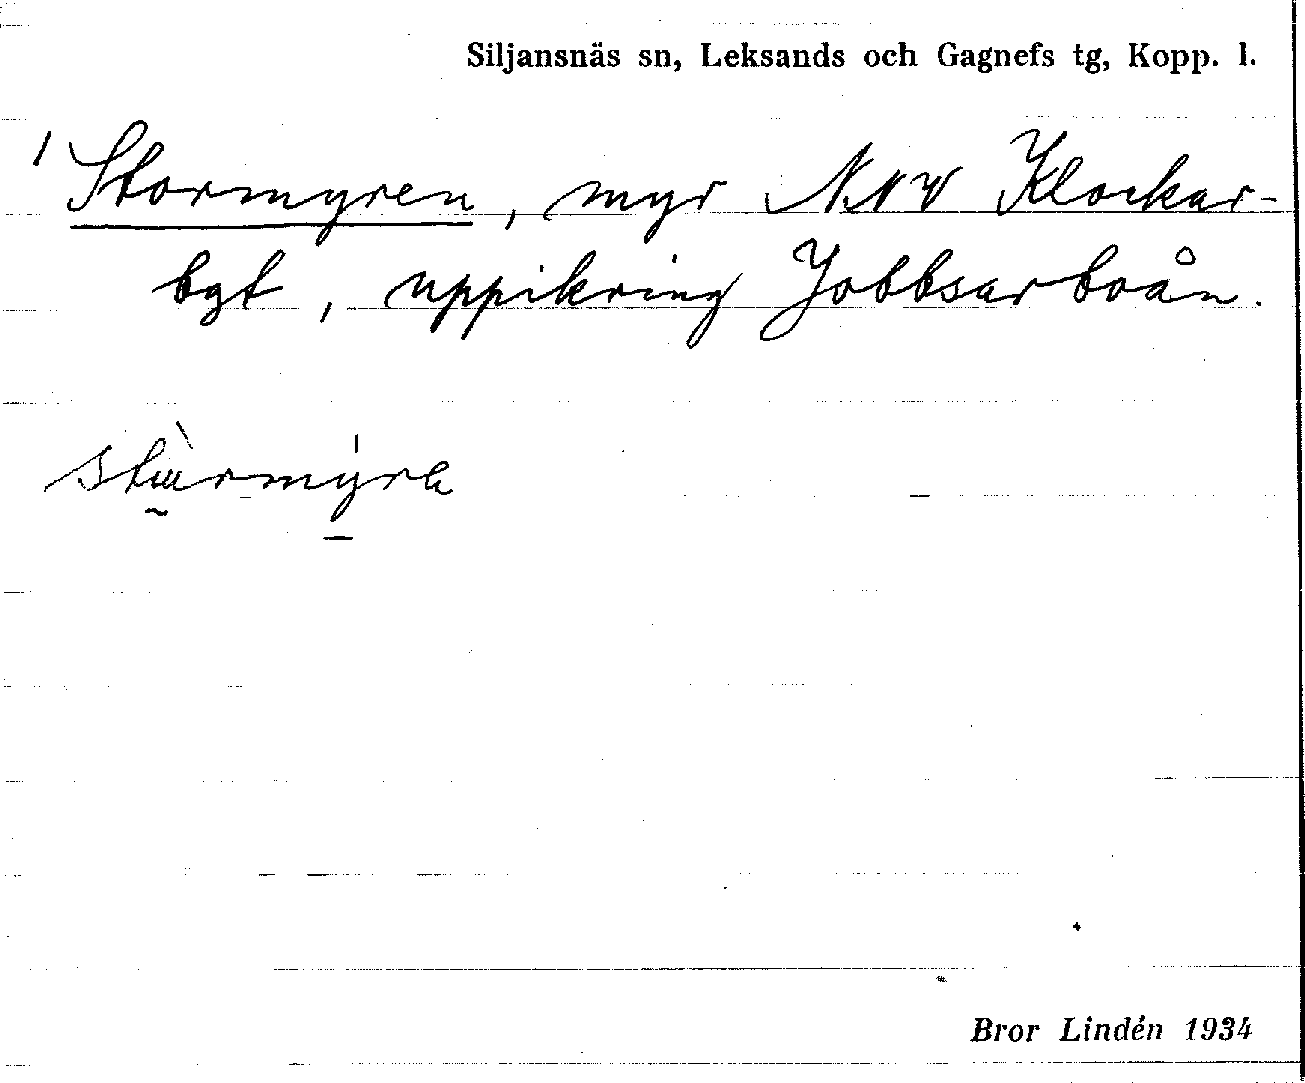 Siljansnäs sn, Leksands och Gagnefs tg, Kopp. l.
Stormyren, myr NNV Klockar-
bgt, uppikring Jobbsarboån.
Bror Lindén 1934